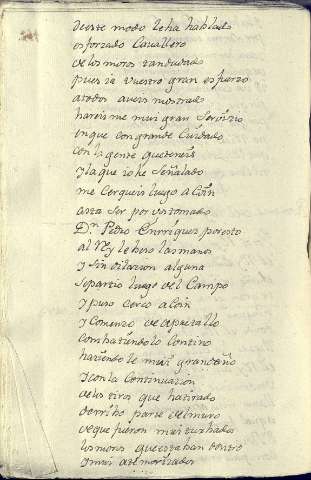 deeste modo le ha hablado
esforzado Cavallero
de los moros tan dudado
pues ya vuestro gran esfuerzo
a todos aveis mostrado
hareis me mui gran servizio
en que con grande Cuidado
con la gente que teneis
y la que io he Señalado
me Cerqueis luego a Coin
asta ser por vs tomado
Dn Pedro Enrriques por esto
al Rey le beso las manos
y sin dilazion alguna
se partio luego del Campo
y puso cerco a Coin
y Comenzo de apretallo
Combatiendolo Contino
haziendole mui gran daño
y con la Continuazion
de los tiros que ha tirado
derribo parte del muro
de que fueron mui turbados
los moros que estaban dentro
y mui atemorizados